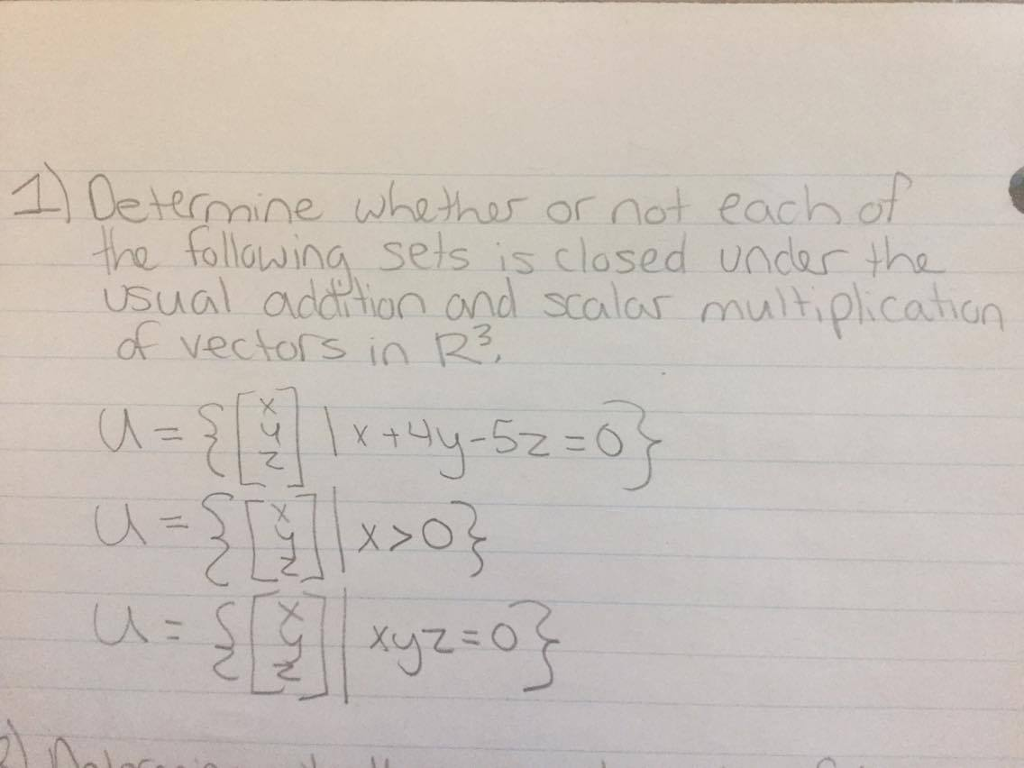 1) Determine whether or not each of
the following sets is closed under the
usual addition and scalar multiplication
of vectors in R³.
U = {[x y z] | x + 4y - 5z = 0}
U = {[x y z] | x > 0}
U = {[x y z] | xyz = 0}
2)